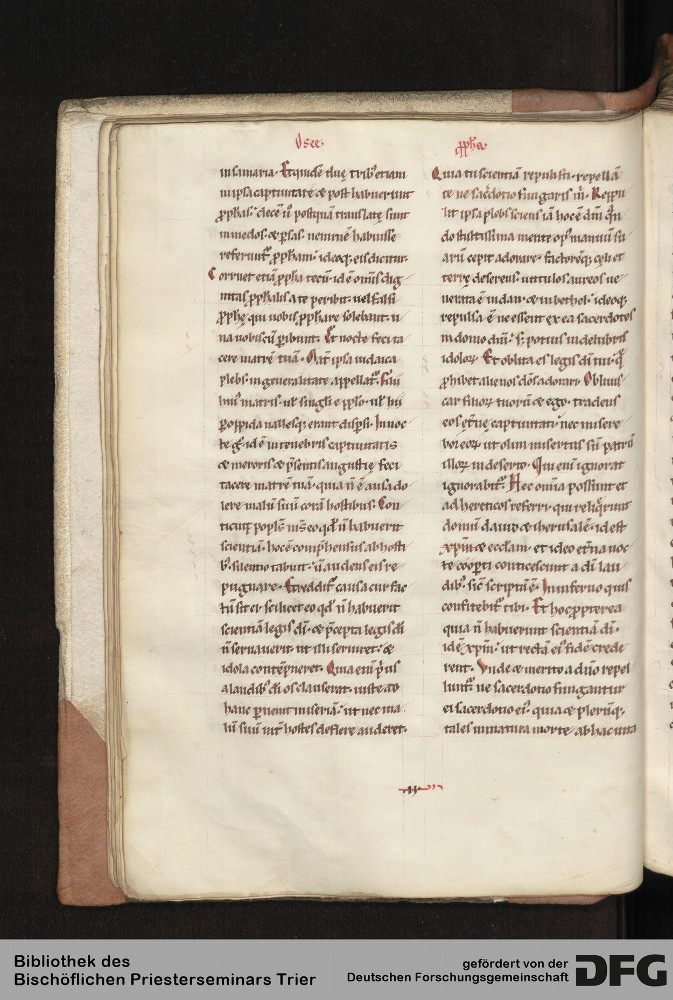 Osee.
ꝓph̄a.
in samaria. Et quidē duę trib᷒ etiam
in ipsa captiuitate & post habuerunt
ꝓphas. decē ū postquā translatę sunt
in medos. & ꝑsas. neminē habuisse
referunt᷑ ꝓpham. ideoq; eis dicitur.
Corruet etiā ꝓpha tecū. id ē omīs dig
nitas ꝓphalis a te peribit. uel falsi
ꝓphę qui uobis ꝓphare solebant. u
na uobiscū ꝑibunt. Et nocte feci ta
cere matrē tuā. Mat͛ ipsa iudaica
plebs. in generalitate appellat᷑.
huius matris. ul̄ singuli e ppło. ul̄ hii
ꝑ oppida uallesq; erant disꝑsi. In noc
te g̊. id ē in tenebris captiuitatis
& meroris & p̄sentis angustię feci
tacere matrē tuā. quia n̄ ē ausa do
lere malū suū corā hostibus. Con
ticuit popl̄s m̄s eo qd̄ n̄ habuerit
scientiā. hoc ē comp̄hensus ab hosti
b᷒. silentio tabuit. n̄ audens eis re
pugnare. Et reddit᷑ causa cur fac
tū sit ei. scilicet eo qd̄ n̄ habuerit
scientiā legis dī. & p̄cepta legis dī
n̄ seruauerit. ut illi seruiret. &
idola contēpneret. Quia enī p̄us
a laudib᷒ dī os clauserat. iuste ad
hanc ꝑuenit miseriā. ut nec ma
lū suū int͛ hostes deflere auderet.
Quia tu scientiā repulisti. repellā
te ne sac̄dotio fungaris m̄. Reppu
lit ipsa plebs scientiā hoc ē dm̄ qn̄
do stultissima mente op᷒ manuū su
arū cepit adorare. factorēq; cęli et
terrę deserens. uitulos aureos ue
nerata ē in dan. & in bethel. ideoq;
repulsa ē ne essent ex ea sacerdotes
in domo dn̄i. s; potius in delubris
idoloꝝ. Et oblita es legis dī tui. q̄
ꝓhibet alienos dōs adorari. Obliuis
car filioꝝ tuorū & ego. tradens
eos et̄nę captiuitati. nec misere
bor eoꝝ. ut olim misertus sū patrū
illoꝝ in deserto. Qui enī ignorat
ignorabit᷑. Hec omīa possunt et
ad hereticos referri. qui reliq̄runt
domū dauid & iherusalē. id est
xp̄m & eccłam. et ideo et̄na noc
te cooꝑti conticescunt a dī lau
dib᷒. sic̄ scriptū ē. In inferno quis
confitebit᷑ tibi. Et hoc propterea
quia n̄ habuerunt scientiā dī.
id ē xp̄m. ut rectā ei᷒ fidē crede
rent. Unde & merito a dn̄o repel
lunt᷑. ne sacerdotio fungantur
ei sacerdotio ei᷒. quia & plerūq;
tales inmatura morte ab hac uita
Bibliothek des
Bischöflichen Priesterseminars Trier
gefördert von der
Deutschen Forschungsgemeinschaft
DFG